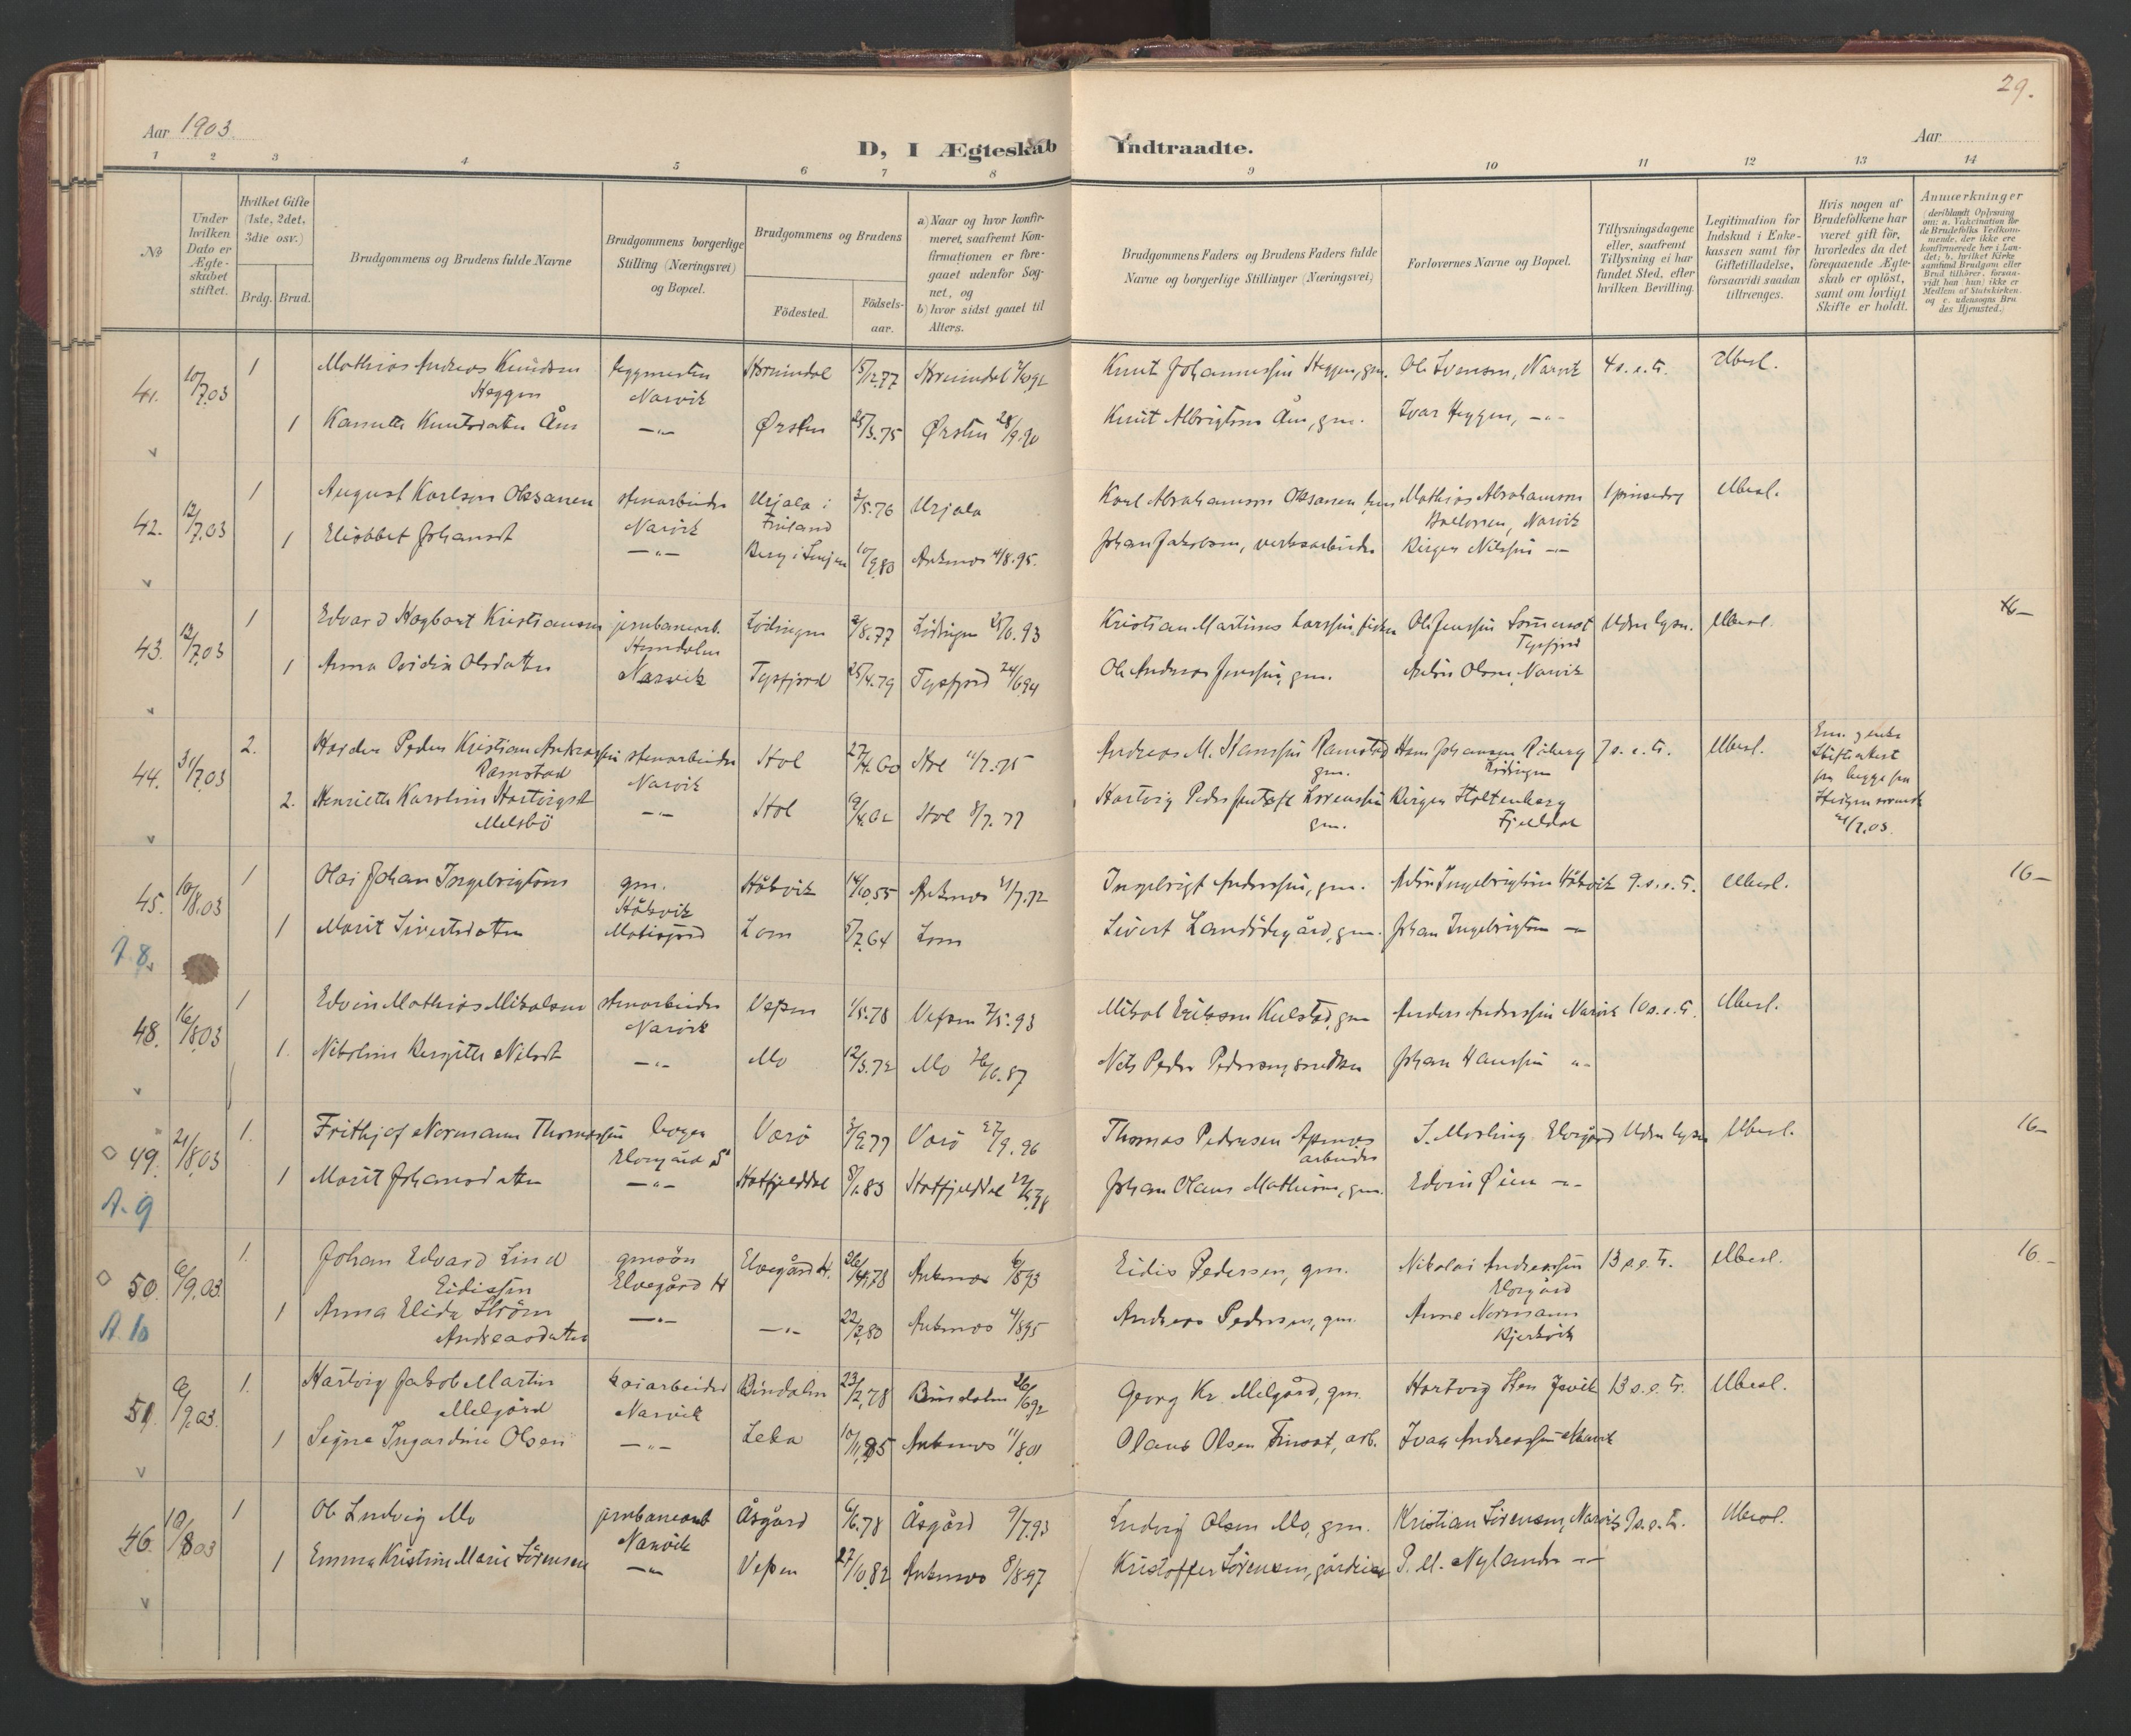 29.
Aar 1903.
D, I Ægteskab Indtraadte.
Aar
1 2 3 4 5 6 7 8 9 10 11 12 13 14
No
Under hvilken Dato er Ægteskabet stiftet.
Hvilket Gifte (1ste, 2det, 3die osv.)
Brdg. Brud.
Brudgommens og Brudens fulde Navne
Brudgommens borgerlige Stilling (Næringsvei) og Bopæl.
Brudgommens og Brudens
Födested.
Födsels-aar.
a) Naar og hvor konfirmeret, saafremt Konfirmationen er foregaaet udenfor Sognet, og
b) hvor sidst gaaet til Alters.
Brudgommens Faders og Brudens Faders fulde Navne og borgerlige Stillinger (Næringsvei)
Forlovernes Navne og Bopæl.
Tillysningsdagene eller, saafremt Tillysning ei har fundet Sted, efter hvilken Bevilling.
Legitimation for Indskud i Enkekassen samt for Giftetilladelse, forsaavidt saadan tiltrænges.
Hvis nogen af Brudefolkene har været gift för, hvorledes da det foregaaende Ægteskab er oplöst, samt om lovligt Skifte er holdt.
Anmærkninger
(deriblandt Oplysning om: a. Vakcination for de Brudefolks Vedkommende, der ikke ere konfirmerede her i Landet; b. hvilket Kirkesamfund Brudgom eller Brud tilhörer, forsaavidt han (hun) ikke er Medlem af Statskirken og c. udensogns Brudes Hjemsted.)
41. 10/7.03 1 Mathias Andreas Knudsen Heggen byggmester Narvik Hornindal 15/12.77 Hornindal Knut Johannessen Heggen, gm. Ole Svensen, Narvik 4 s. e. Tr. Uberl.
1 Knutsdatter Åm —„— Ørsten 25/3.75 Ørsten 28/9.90 Knut Albrigtsen Åm, gm. Ivar Heggen, —„—
42. 12/7.03 1 August Karlsen Oksanen stenarbeider Narvik Urjala i Finland 2/5.76 Urjala Karl Abrahamsen Oksanen, Mathias Abrahamsen Narvik 1 pinsedag Uberl.
1 Elisabet Johansdt —„— Berg i Senjen 10/9.80 Ankenes 4/8.95. Johan Jakobsen, verksarbeider Birger Nilssen —„—
43. 12/7.03 1 Edvard Hagbart Kristiansen jernbanearb. Hundalen Lödingen 2/8.77 Lödingen 25/6.93 Kristian Martinus Larssen, fisker Ole Jenssen Tysfjord Uden lysn. Uberl. 16—
1 Anna Ovidia Olsdatter Narvik Tysfjord 25/4.79 Tysfjord 24/6.94 Ole Andreas Jenssen, gm. Anton Olsen, Narvik
44. 31/7.03 2. Peder Kristian Andreassen Ramstad stenarbeider Narvik Hol 27/4.60 Hol 11/7.75 Andreas M. Hanssen Ramstad gm. Hans Johansen Råberg Lödingen 7 s. e. Tr. Uberl.
2. Henriette Karoline Hartvigsdt Melsbö —„— Hol 19/4.62 Hol 8/7.77 Hartvig Peder Lorenssen gm. Birger Holtenberg Fjelldal
45. 10/8.03 1 Olai Johan Ingebrigtsen gm. Håkvik Håkvik 14/10.55 Ankenes 21/7.72 Ingebrigt Anderssen, gm. Ingebrigtsen Håkvik 9. s. e. Tr. Uberl. 16—
A 8. 1 Marit Sivertsdatter Lom 5/7.64 Lom Sivert gm. Johan Ingebrigtsen —„—
48. 16/8.03 1 Edvin Mathias Mikalsen stenarbeider Narvik Vefsen 1/5.78 Vefsen 7/5.93 Mikal Eriksen Kulstad, gm Anders Anderssen Narvik 10 s. e. Tr. Uberl.
1. Nikoline Bergitte Nilsdt —„— Mo 12/3.72 Mo 26/6.87 Nils Peder Pedersen Johan Hanssen „—
49. 21/8.03 1. Frithjof Normann Thomassen Elvegård S Værö Værö 27/9.96 Thomas Pedersen arbeider S. Mosling Elvegård Uden lysn. Uberl. 16—
A. 9 1 Marit Johansdatter —„— Hatfjelddal 8/1.83 Hatfjelddal Johan Olaus Mathisen, gm. Edvin Øien —„—
50. 6/9.03. 1. Johan Edvard Lind Eidissen gmsön Elvegård H Elvegård H. 26/4.78 Ankenes 6/8.93 Eidis Pedersen, gm. Nikolai Andreassen Elvegård 13 s. e. Tr. Uberl. 16—
A. 10 1 Anna Elida Ström Andreasdatter —„— —„— 22/2.80 Ankenes 4/8.95 Andreas Pedersen, gm. Arne Normann Bjerkvik
51. 6/9.03. 1. Hartvig Jakob Martin Melgård kaiarbeider Narvik Bindalen 23/2.78 Bindalen 26/6.92 Georg Kr. Melgård, gm. Hartvig 13 s. e. Tr. Uberl.
1 Signe Ingardine Olsen —„— Leka 10/11.85 Ankenes 11/8.01 Olaus Olsen arb. Ivar Andreassen Narvik
46. 10/8.03 1 Ole Ludvig Mo jernbanearb Narvik Åsgård 6/6.78 Åsgård 9/7.93 Ludvig Olsen Mo, gm. Kristian Sörensen, Narvik 9 s. e. Tr. Uberl.
1 Emma Kristine Marie Sörensen —„— Vefsen 27/10.82 Ankenes 8/8.97 Kristoffer Sörensen, gårdeier P. M. Nylander —„—